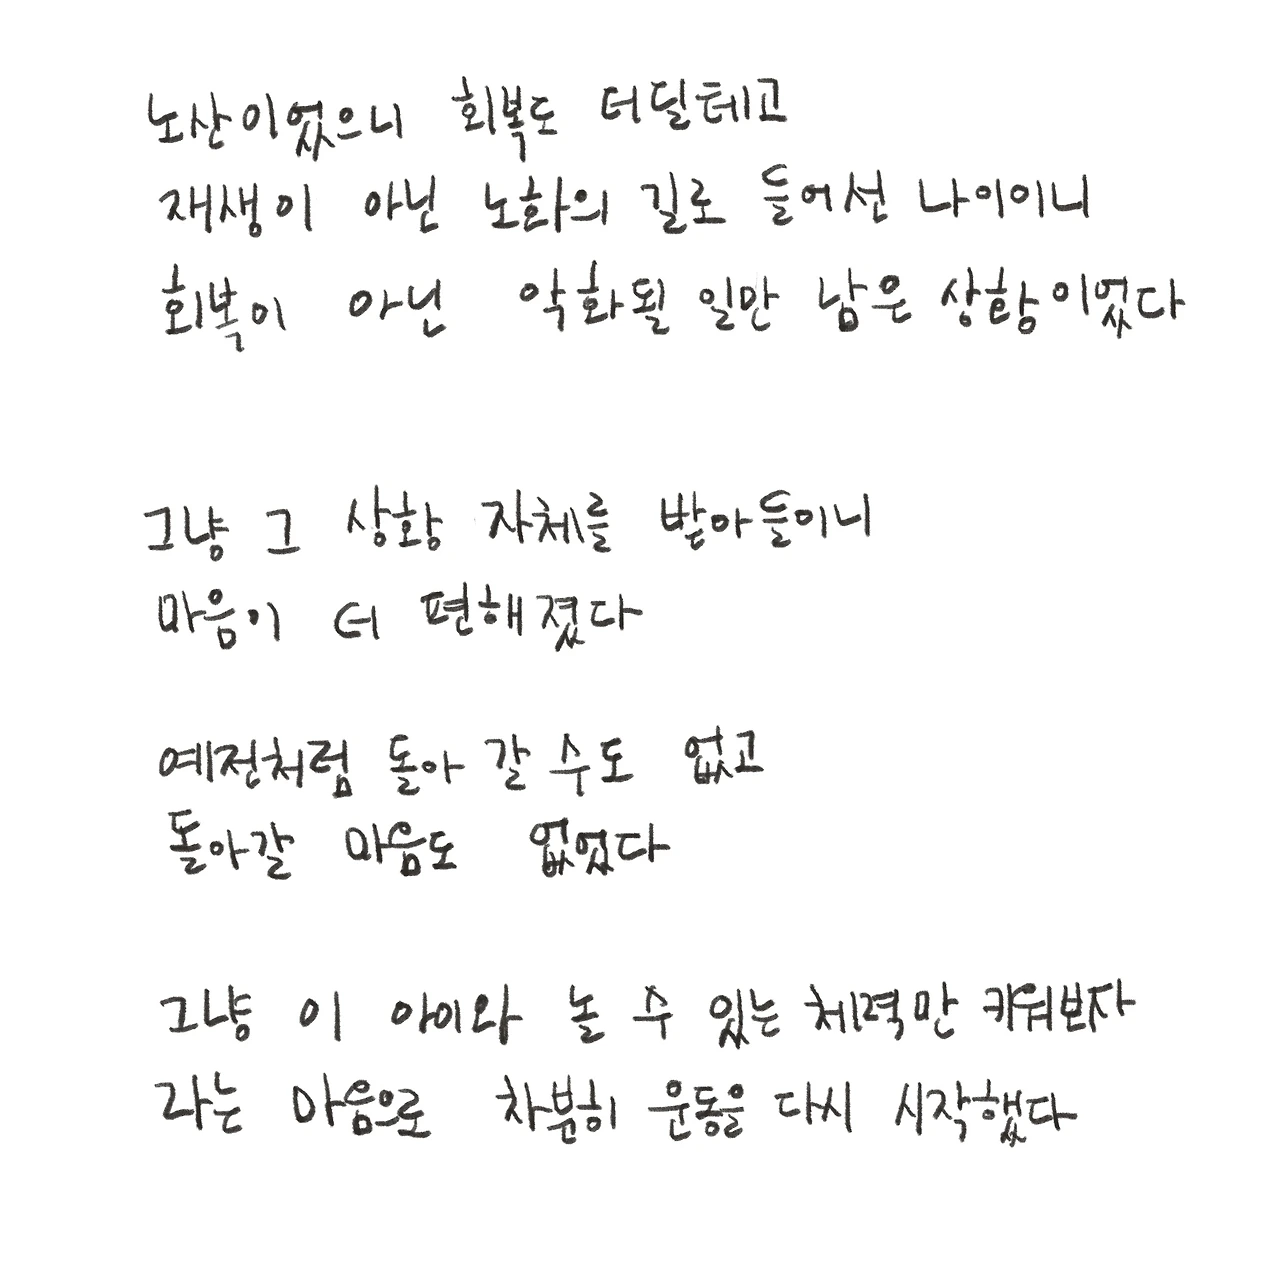 노산이었으니 회복도 더딜테고
재생이 아닌 노화의 길로 들어선 나이이니
회복이 아닌 악화될 일만 남은 상황이었다
그냥 그 상황 자체를 받아들이니
마음이 더 편해졌다
예전처럼 돌아 갈 수도 없고
돌아갈 마음도 없었다
그냥 이 아이와 놀 수 있는 체력만 키워보자
라는 마음으로 차분히 운동을 다시 시작했다